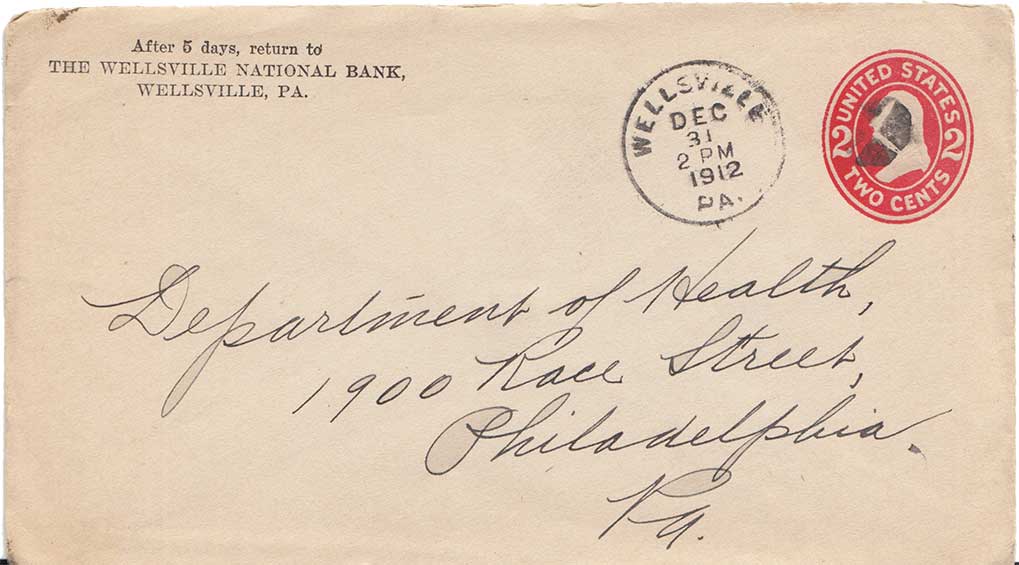 After 5 days, return to
THE WELLSVILLE NATIONAL BANK,
WELLSVILLE, PA.
WELLSVILLE
DEC
31
2 PM
1912
PA.
UNITED STATES
2 2
TWO CENTS
Department of Health,
1900 Race Street,
Philadelphia.
Pa.